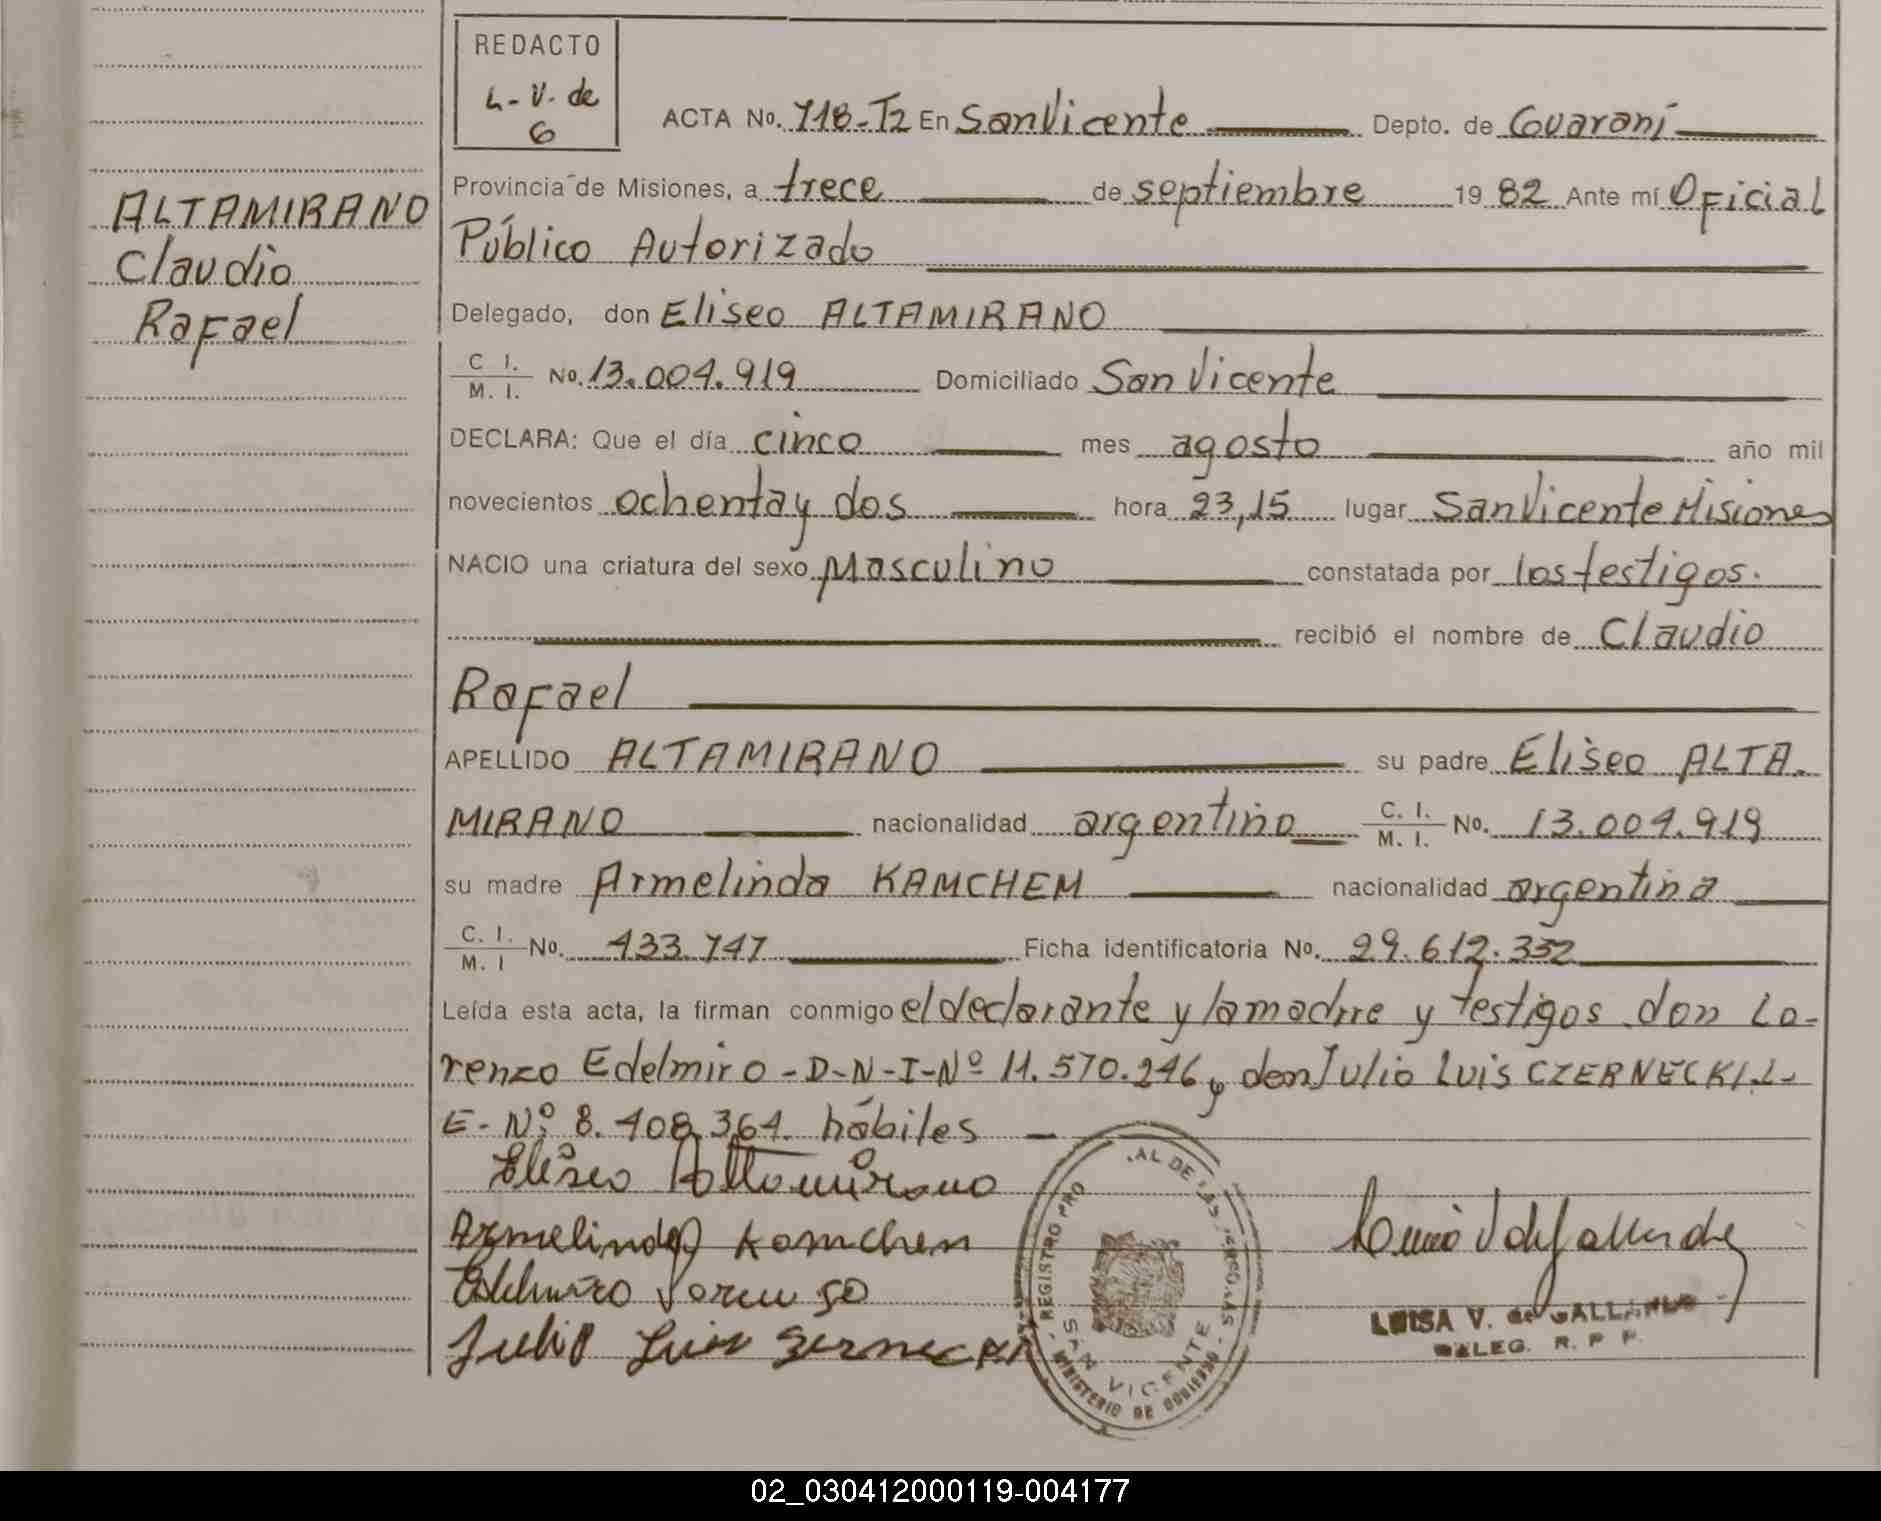 REDACTO
L-V. de
G
ALTAMIRANO
Claudio
Rafael
ACTA No. 718-T2 En San Vicente Depto. de Guaraní
Provincia de Misiones, a trece de septiembre 19 82 Ante mí Oficial
Público Autorizado
Delegado, don Eliseo ALTAMIRANO
C I. M. I. No. 13.004.919 Domiciliado San Vicente
DECLARA: Que el día cinco mes agosto año mil
novecientos ochenta y dos hora 23,15 lugar San Vicente Misiones
NACIO una criatura del sexo Masculino constatada por los testigos.
recibió el nombre de Claudio
Rafael
APELLIDO ALTAMIRANO su padre Eliseo ALTA-
MIRANO nacionalidad argentino C. I. M. I. No. 13.004.919
su madre Armelinda KAMCHEM nacionalidad argentina
C. I. M. I No. 433.747 Ficha identificatoria No. 29.612.332
Leída esta acta, la firman conmigo el declarante y la madre y testigos don Lo-
renzo Edelmiro - D-N-I-Nº 11.570.246 y don Julio Luis CZERNECKI L-
E-Nº 8.408.364. hábiles
Eliseo Altamirano
Armelinda Kamchen
Edelmiro Lorenzo
Julio Luis
REGISTRO PRO AL DE LAS PERSONAS
SAN VICENTE
MINISTERIO DE GOBIERNO
LUISA V. de GALLARDO
DELEG. R. P. P.
02_030412000119-004177